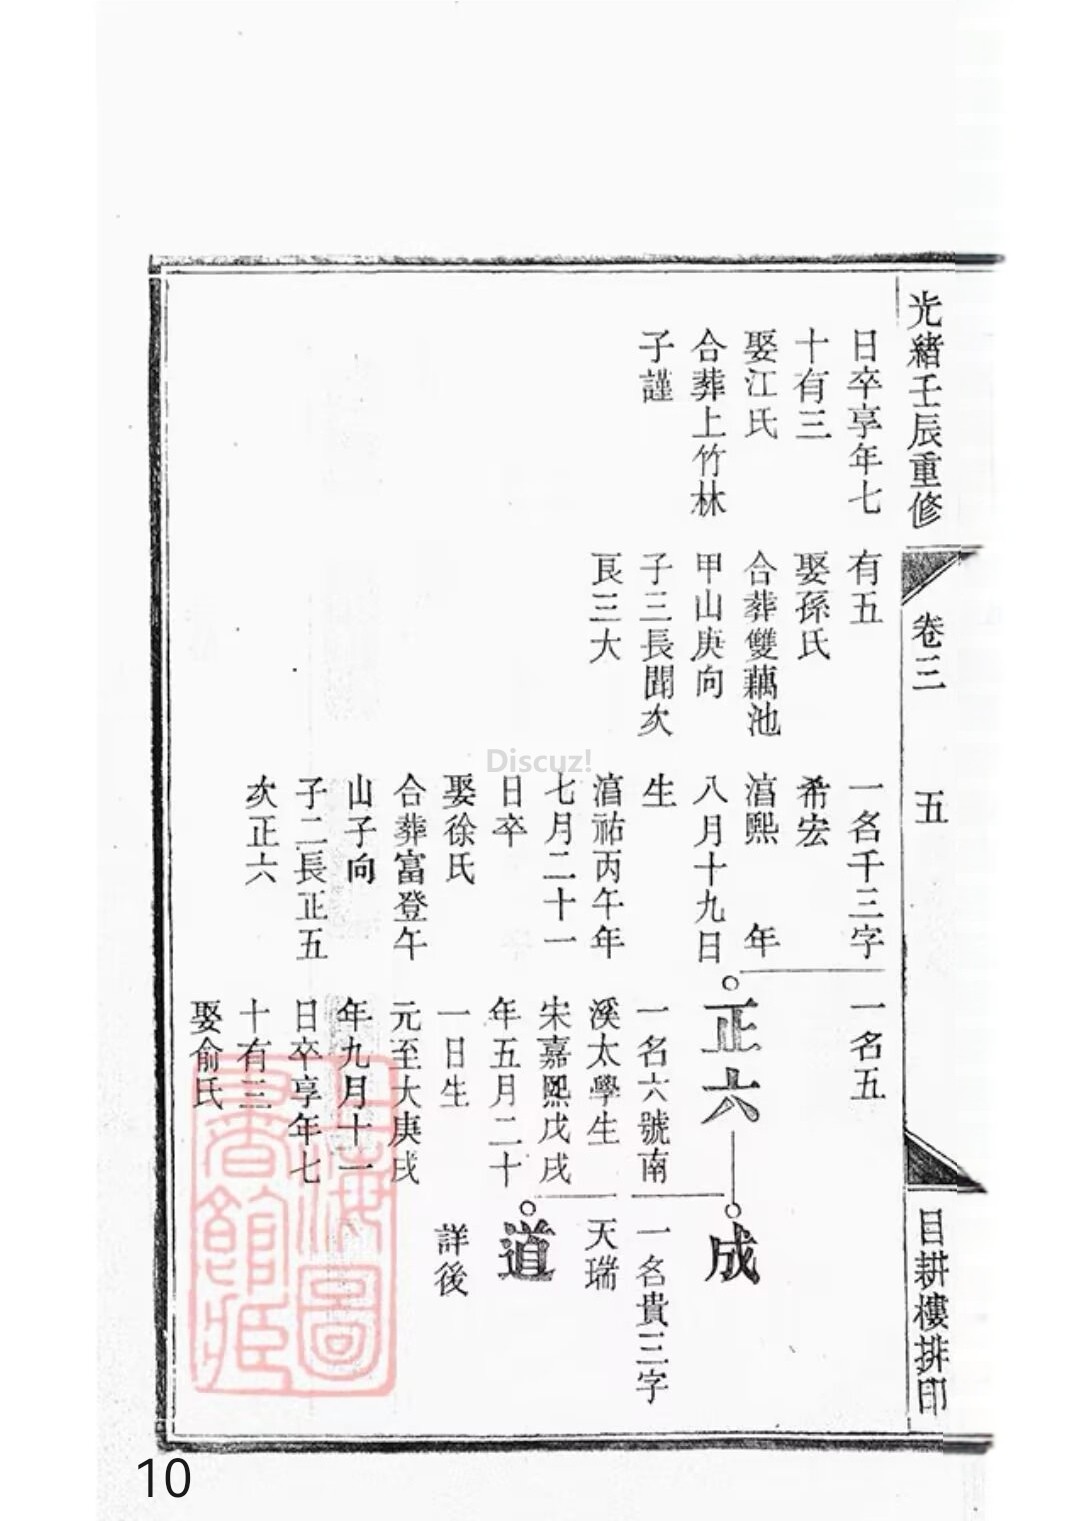 光緒壬辰重修
卷三
五
目耕樓排印
日卒享年七
十有三
娶江氏
合葬上竹林
子謹
有五
娶孫氏
合葬雙藕池
甲山庚向
子三長聞次
艮三大
一名千三字
希宏
淳熙 年
八月十九日
生
淳祐丙午年
七月二十一
日卒
娶徐氏
合葬富登午
山子向
子二長正五
次正六
一名五
正六
一名六號南
溪太學生
宋嘉熙戊戌
年五月二十
一日生
元至大庚戌
年九月十一
日卒享年七
十有三
娶俞氏
成
一名貴三字
天瑞
道
詳後
上海圖
書館藏
Discuz!
10